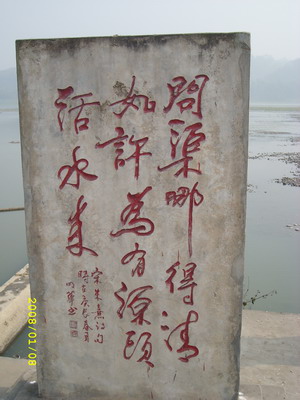 問渠哪得清
如許為有源頭
活水來
宋朱熹詩句
2008/01/08